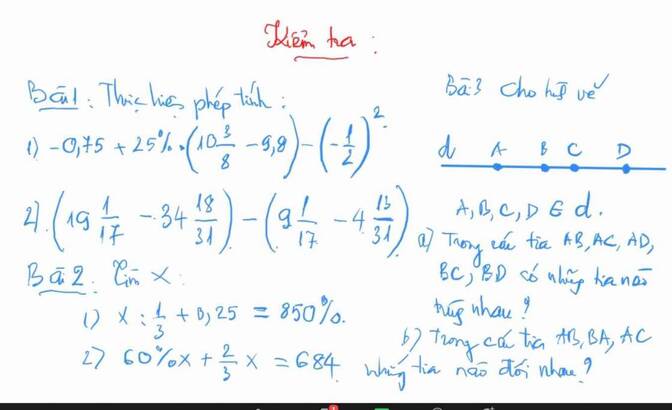 Kiểm tra :
Bài 1 : Thực hiện phép tính :
1) -0,75 + 25% . (10 3/8 - 9,8) - (-1/2)^2
2) (19 1/17 - 34 18/31) - (9 1/17 - 4 13/31)
Bài 2 : Tìm x :
1) x : 1/3 + 0,25 = 850%.
2) 60%x + 2/3 x = 684
Bài 3 Cho hình vẽ
d A B C D
A, B, C, D ∈ d.
a) Trong các tia AB, AC, AD,
BC, BD có những tia nào
trùng nhau ?
b) Trong các tia AB, BA, AC
những tia nào đối nhau ?